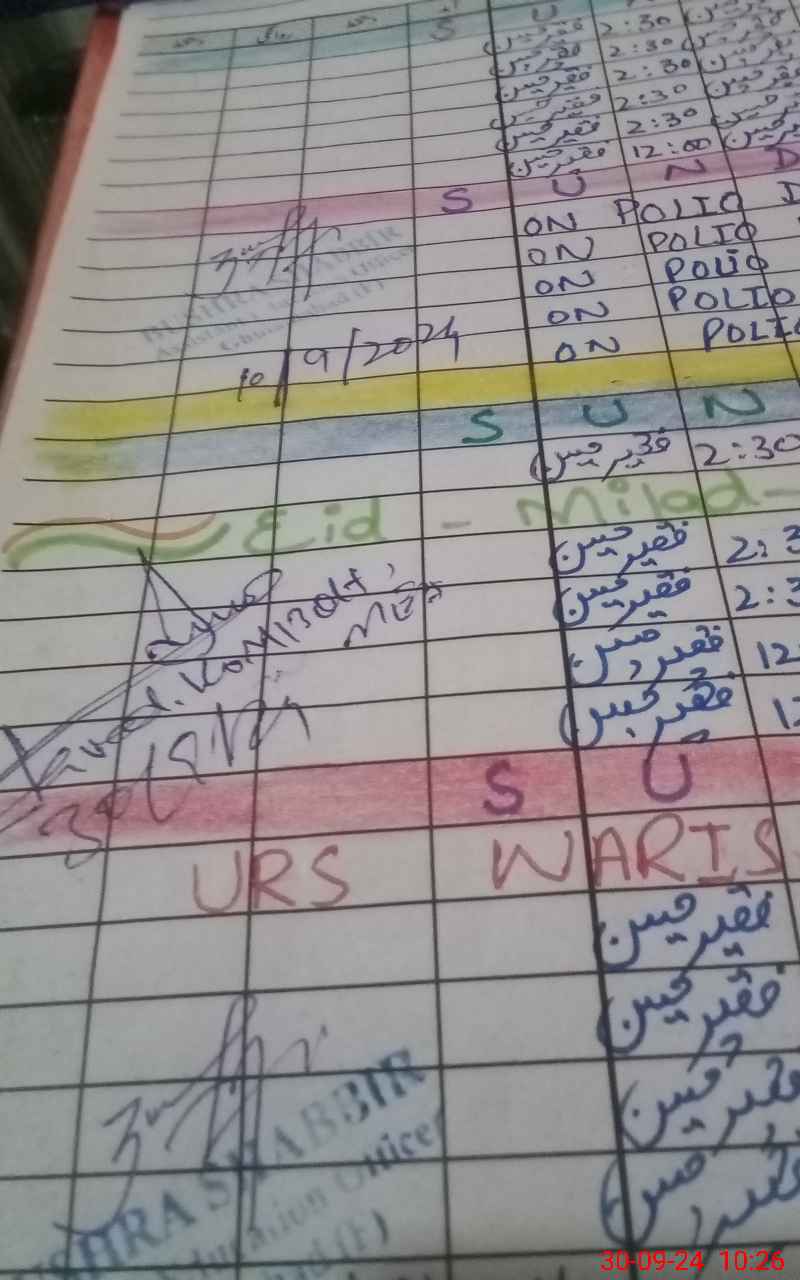 S U
فقیر حسین 2:30 فقیر حسین
فقیر حسین 2:30 فقیر حسین
فقیر حسین 2:30 فقیر حسین
فقیر حسین 2:30 فقیر حسین
فقیر حسین 2:30 فقیر حسین
فقیر حسین 12:00 فقیر حسین
S U N D
ON POLIO D
ON POLIO
ON POLIO
ON POLIO
ON POLIO
BUSHRA SHABBIR
Assistant Education Officer
10/9/2024
S U N
فقیر حسین 2:30
Eid - Milad -
فقیر حسین 2:3
فقیر حسین 2:3
فقیر حسین 12
فقیر حسین 12
MEA
S U
URS WARIS
فقیر حسین
فقیر حسین
فقیر حسین
فقیر حسین
SHRA SHABBIR
ducation Officer
bad (F)
30-09-24 10:26